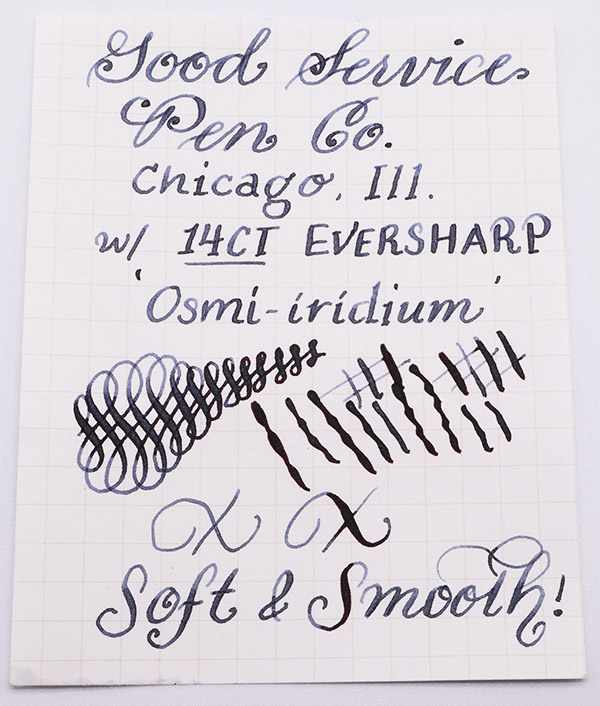 Good Service
Pen Co.
Chicago, Ill.
w/ 14CT EVERSHARP
'Osmi-iridium'
X X
Soft & Smooth!